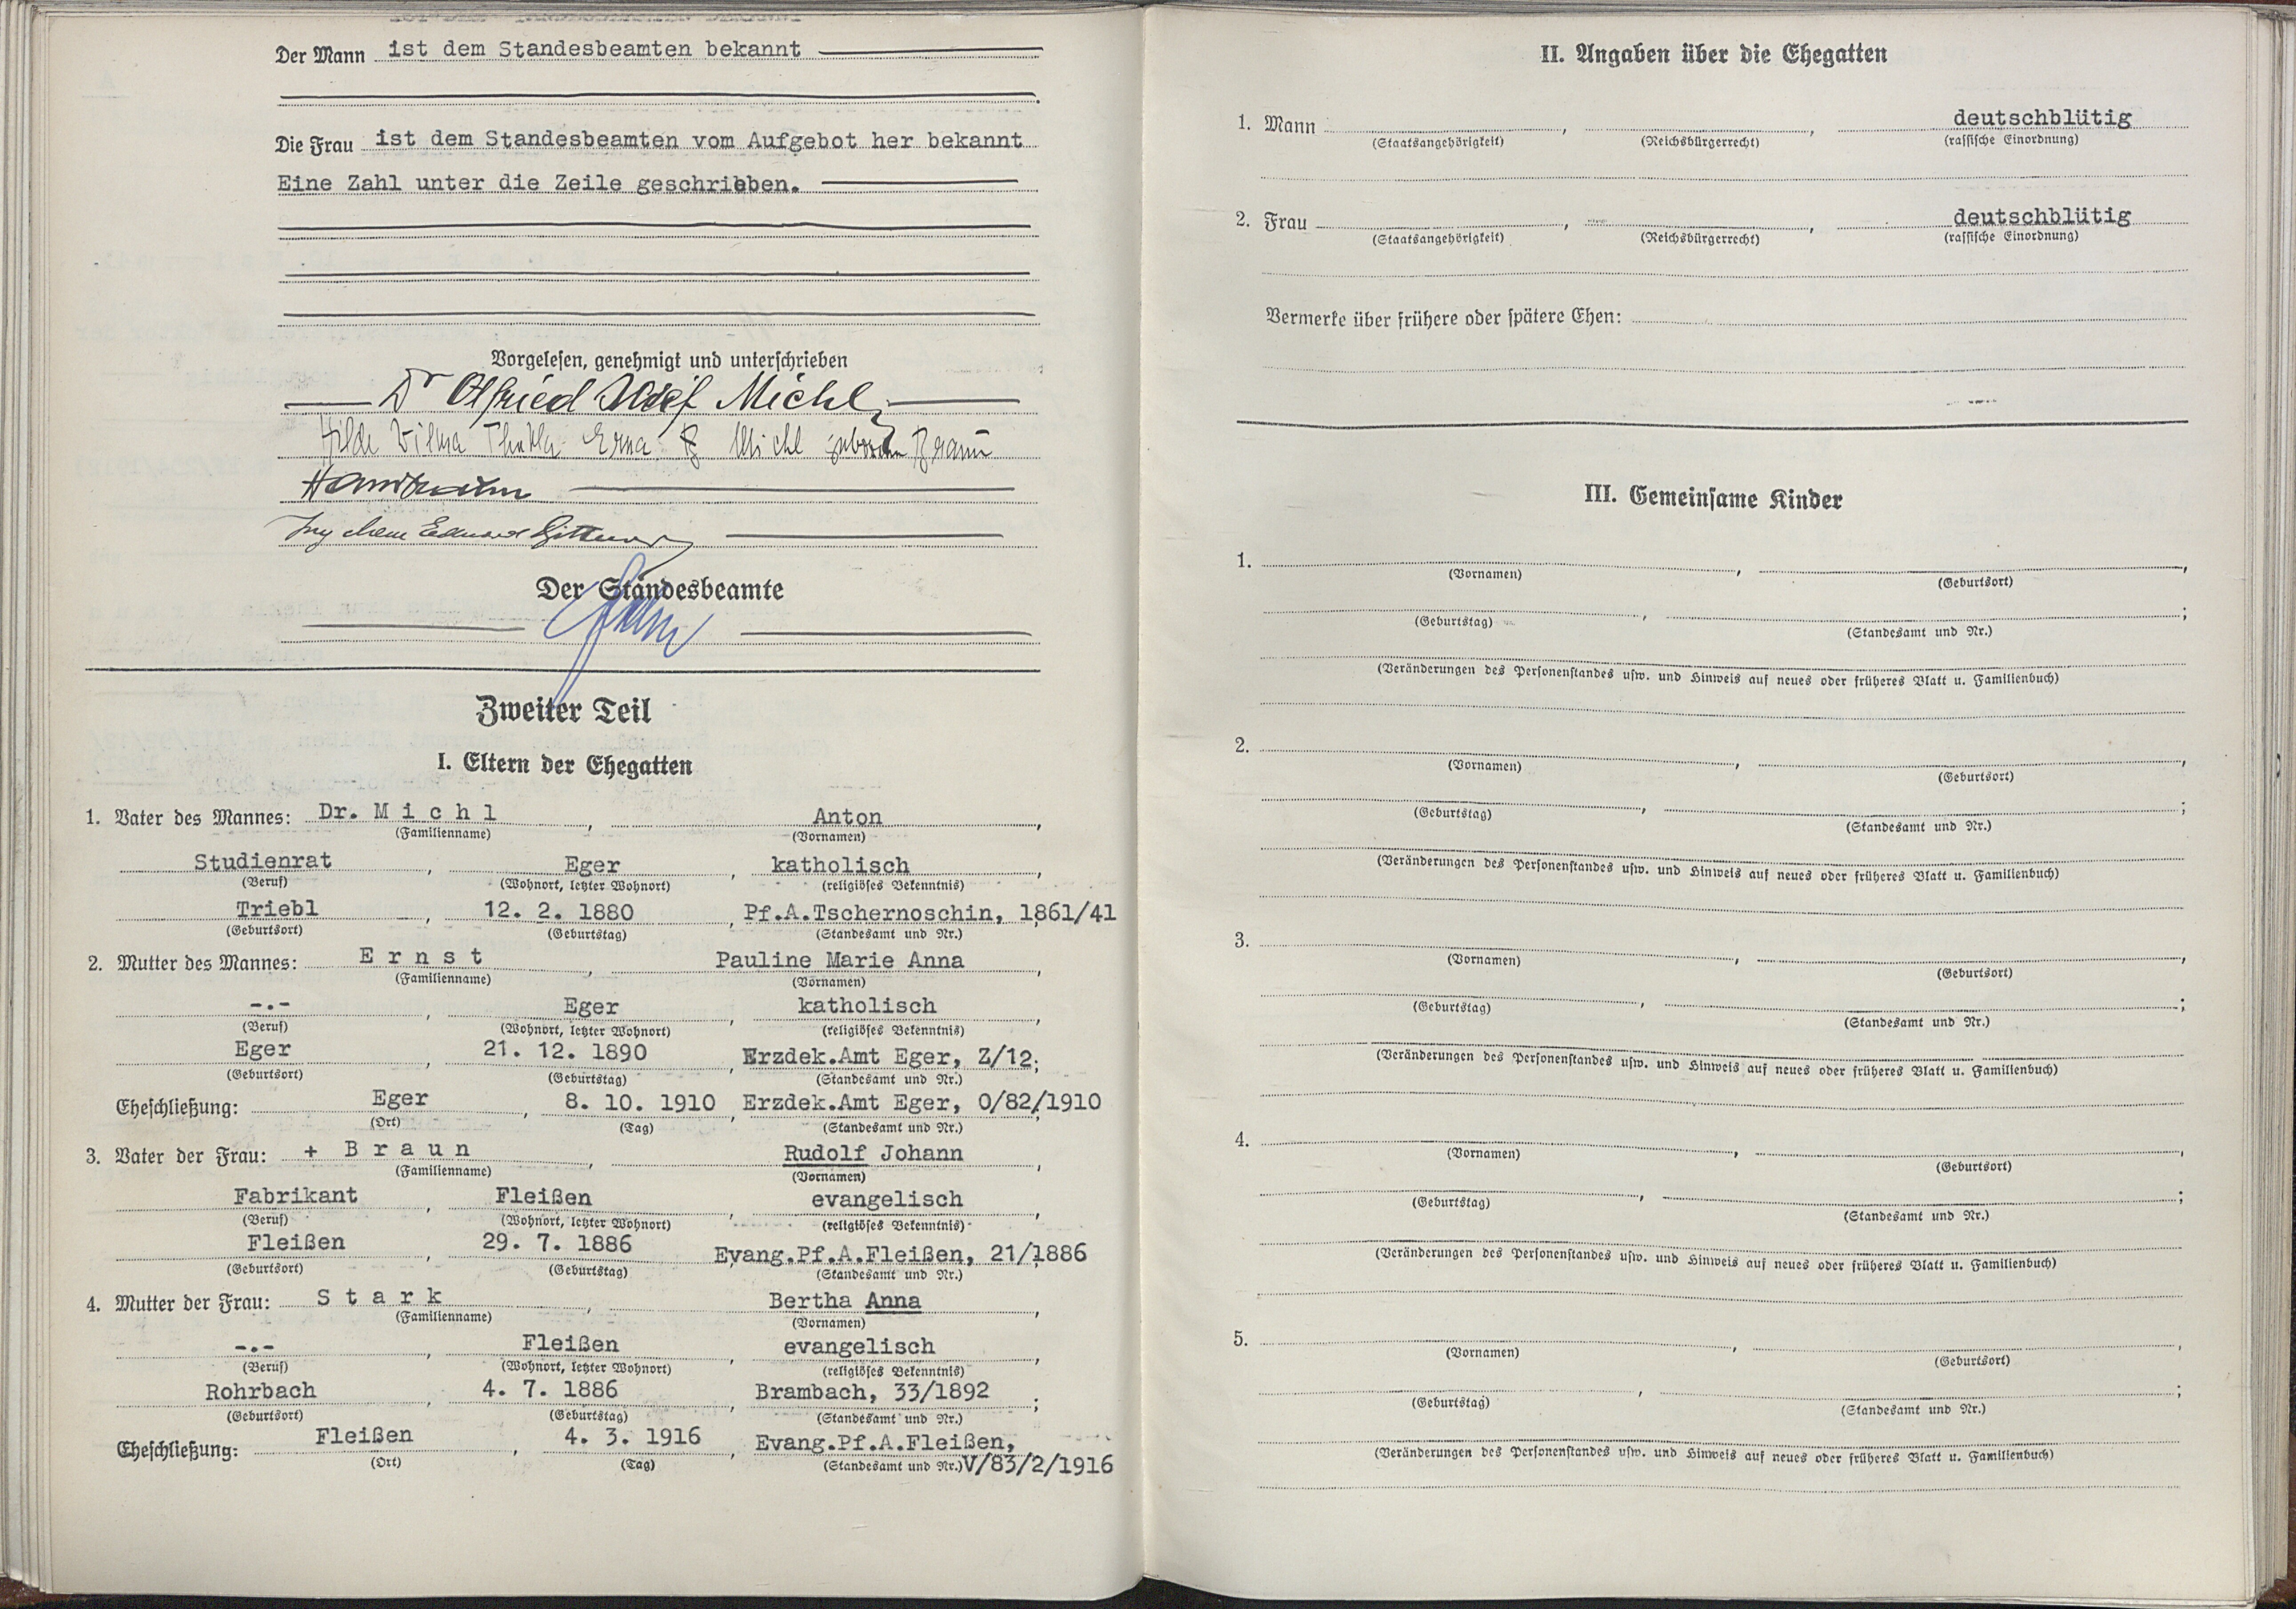 Der Mann ist dem Standesbeamten bekannt
Die Frau ist dem Standesbeamten vom Aufgebot her bekannt
Eine Zahl unter die Zeile geschrieben.
Vorgelesen, genehmigt und unterschrieben
Dr Otfried Josef Michl
Hilde Vilma Thekla Erna B Michl geborene Braun
Ing chem Eduard
Der Standesbeamte
Zweiter Teil
I. Eltern der Ehegatten
1. Vater des Mannes: Dr. M i c h l, Anton,
(Familienname) (Vornamen)
Studienrat, Eger, katholisch,
(Beruf) (Wohnort, letzter Wohnort) (religiöses Bekenntnis)
Triebl, 12. 2. 1880, Pf.A.Tschernoschin, 1861/41
(Geburtsort) (Geburtstag) (Standesamt und Nr.)
2. Mutter des Mannes: E r n s t, Pauline Marie Anna,
(Familienname) (Vornamen)
-.-, Eger, katholisch,
(Beruf) (Wohnort, letzter Wohnort) (religiöses Bekenntnis)
Eger, 21. 12. 1890, Erzdek.Amt Eger, Z/12;
(Geburtsort) (Geburtstag) (Standesamt und Nr.)
Eheschließung: Eger, 8. 10. 1910, Erzdek.Amt Eger, O/82/1910
(Ort) (Tag) (Standesamt und Nr.)
3. Vater der Frau: + B r a u n, Rudolf Johann,
(Familienname) (Vornamen)
Fabrikant, Fleißen, evangelisch,
(Beruf) (Wohnort, letzter Wohnort) (religiöses Bekenntnis)
Fleißen, 29. 7. 1886, Evang.Pf.A.Fleißen, 21/1886
(Geburtsort) (Geburtstag) (Standesamt und Nr.)
4. Mutter der Frau: S t a r k, Bertha Anna,
(Familienname) (Vornamen)
-.-, Fleißen, evangelisch,
(Beruf) (Wohnort, letzter Wohnort) (religiöses Bekenntnis)
Rohrbach, 4. 7. 1886, Brambach, 33/1892;
(Geburtsort) (Geburtstag) (Standesamt und Nr.)
Eheschließung: Fleißen, 4. 3. 1916, Evang.Pf.A.Fleißen,
(Ort) (Tag) (Standesamt und Nr.) V/83/2/1916
II. Angaben über die Ehegatten
1. Mann , , deutschblütig
(Staatsangehörigkeit) (Reichsbürgerrecht) (rassische Einordnung)
2. Frau , , deutschblütig
(Staatsangehörigkeit) (Reichsbürgerrecht) (rassische Einordnung)
Vermerke über frühere oder spätere Ehen:
III. Gemeinsame Kinder
1. , ,
(Vornamen) (Geburtsort)
, ;
(Geburtstag) (Standesamt und Nr.)
(Veränderungen des Personenstandes usw. und Hinweis auf neues oder früheres Blatt u. Familienbuch)
2. , ,
(Vornamen) (Geburtsort)
, ;
(Geburtstag) (Standesamt und Nr.)
(Veränderungen des Personenstandes usw. und Hinweis auf neues oder früheres Blatt u. Familienbuch)
3. , ,
(Vornamen) (Geburtsort)
, ;
(Geburtstag) (Standesamt und Nr.)
(Veränderungen des Personenstandes usw. und Hinweis auf neues oder früheres Blatt u. Familienbuch)
4. , ,
(Vornamen) (Geburtsort)
, ;
(Geburtstag) (Standesamt und Nr.)
(Veränderungen des Personenstandes usw. und Hinweis auf neues oder früheres Blatt u. Familienbuch)
5. , ,
(Vornamen) (Geburtsort)
, ;
(Geburtstag) (Standesamt und Nr.)
(Veränderungen des Personenstandes usw. und Hinweis auf neues oder früheres Blatt u. Familienbuch)